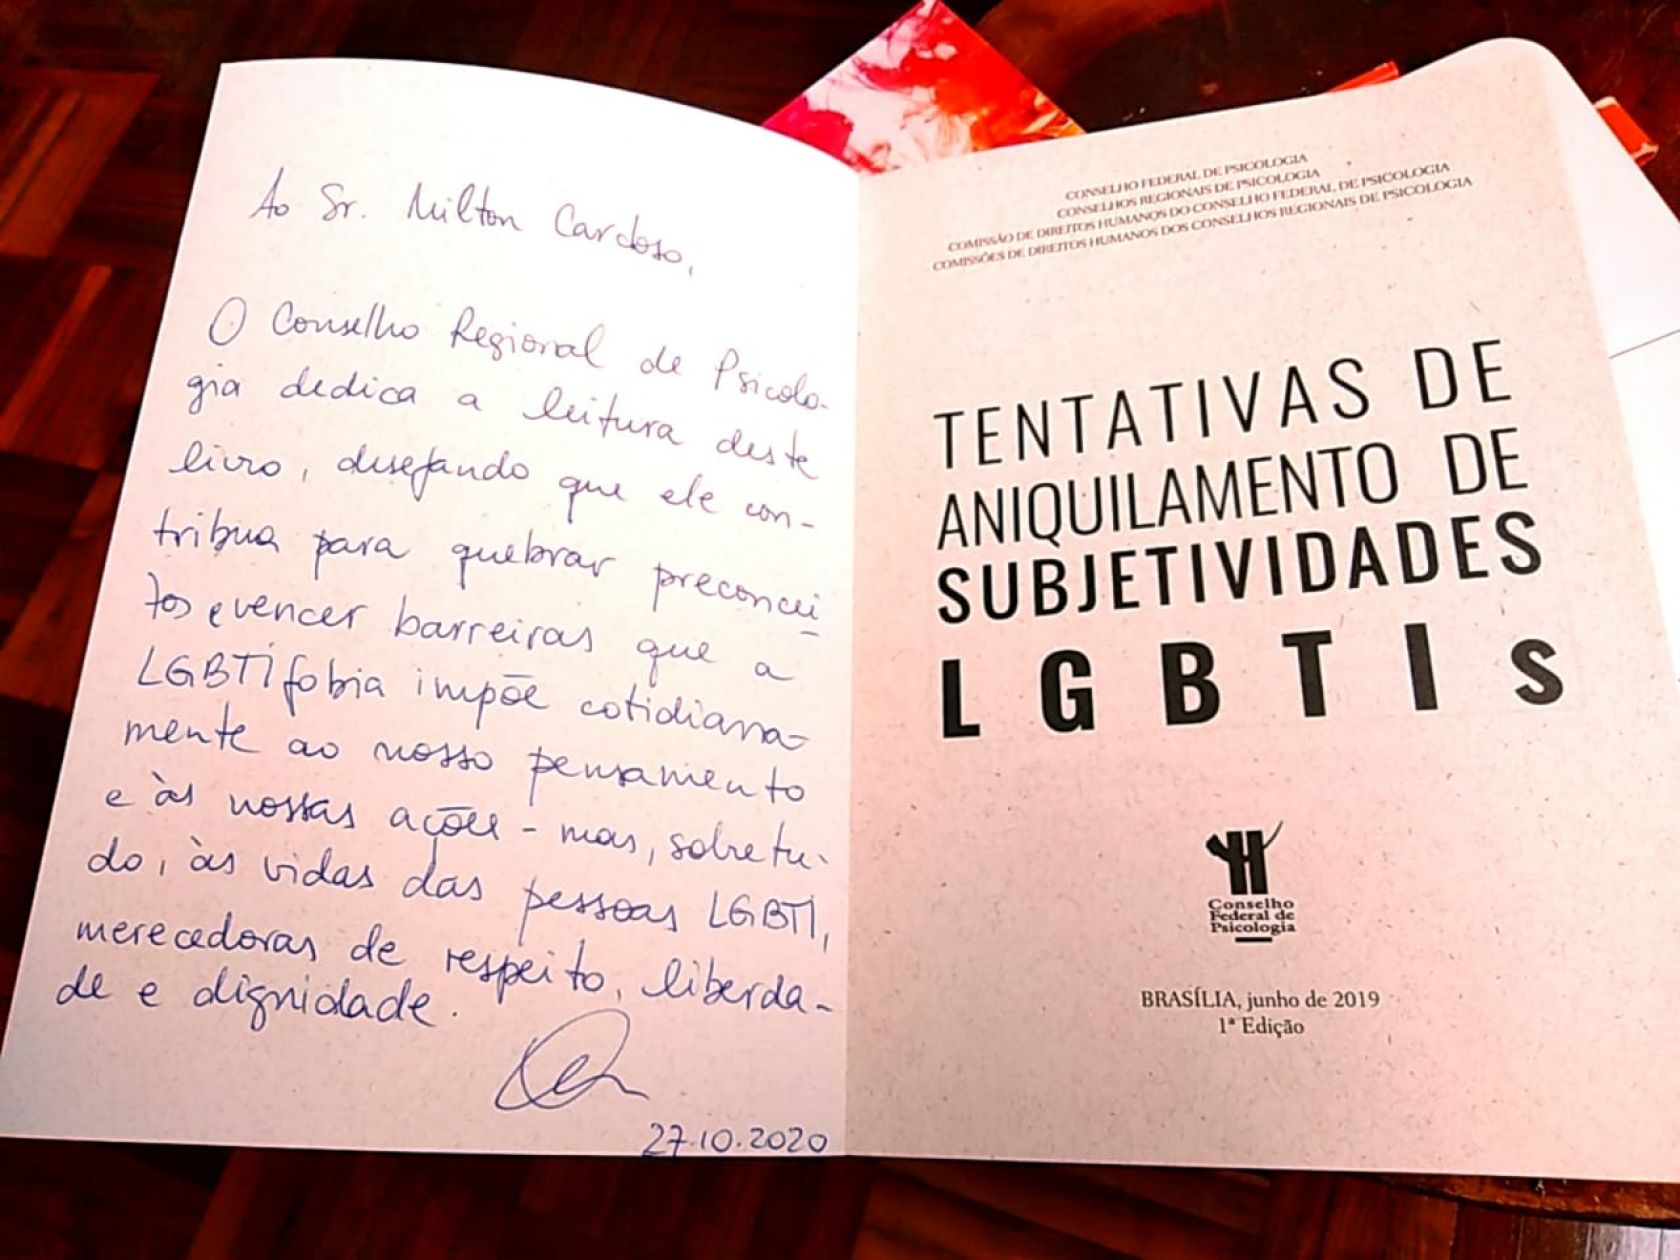 Ao Sr. Milton Cardoso,
O Conselho Regional de Psicolo-
gia dedica a leitura deste
livro, desejando que ele con-
tribua para quebrar preconcei-
tos e vencer barreiras que a
LGBTIfobia impõe cotidiana-
mente ao nosso pensamento
e às nossas ações - mas, sobretu-
do, às vidas das pessoas LGBTI,
merecedoras de respeito, liberda-
de e dignidade.
27.10.2020
CONSELHO FEDERAL DE PSICOLOGIA
CONSELHOS REGIONAIS DE PSICOLOGIA
COMISSÃO DE DIREITOS HUMANOS DO CONSELHO FEDERAL DE PSICOLOGIA
COMISSÕES DE DIREITOS HUMANOS DOS CONSELHOS REGIONAIS DE PSICOLOGIA
TENTATIVAS DE
ANIQUILAMENTO DE
SUBJETIVIDADES
LGBTIs
Conselho
Federal de
Psicologia
BRASÍLIA, junho de 2019
1ª Edição